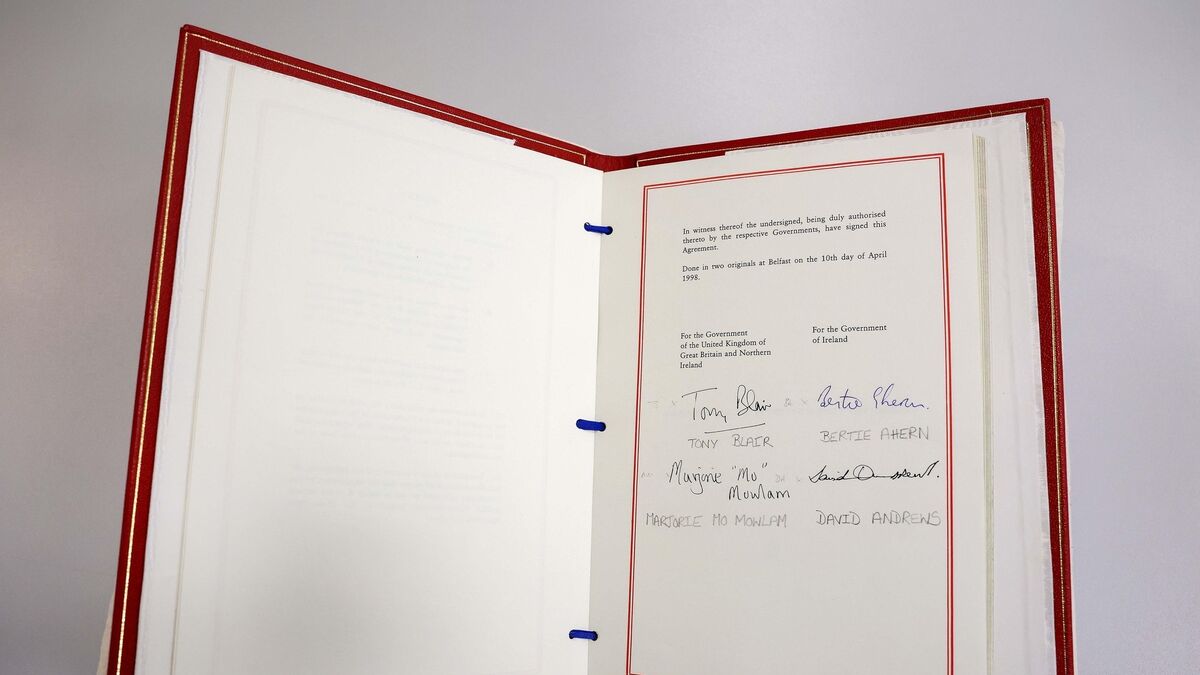 In witness thereof the undersigned, being duly authorised
thereto by the respective Governments, have signed this
Agreement.
Done in two originals at Belfast on the 10th day of April
1998.
For the Government
of the United Kingdom of
Great Britain and Northern
Ireland
For the Government
of Ireland
Tony Blair
Bertie Ahern.
TONY BLAIR
BERTIE AHERN
Marjorie "Mo"
Mowlam
MARJORIE MO MOWLAM
DAVID ANDREWS